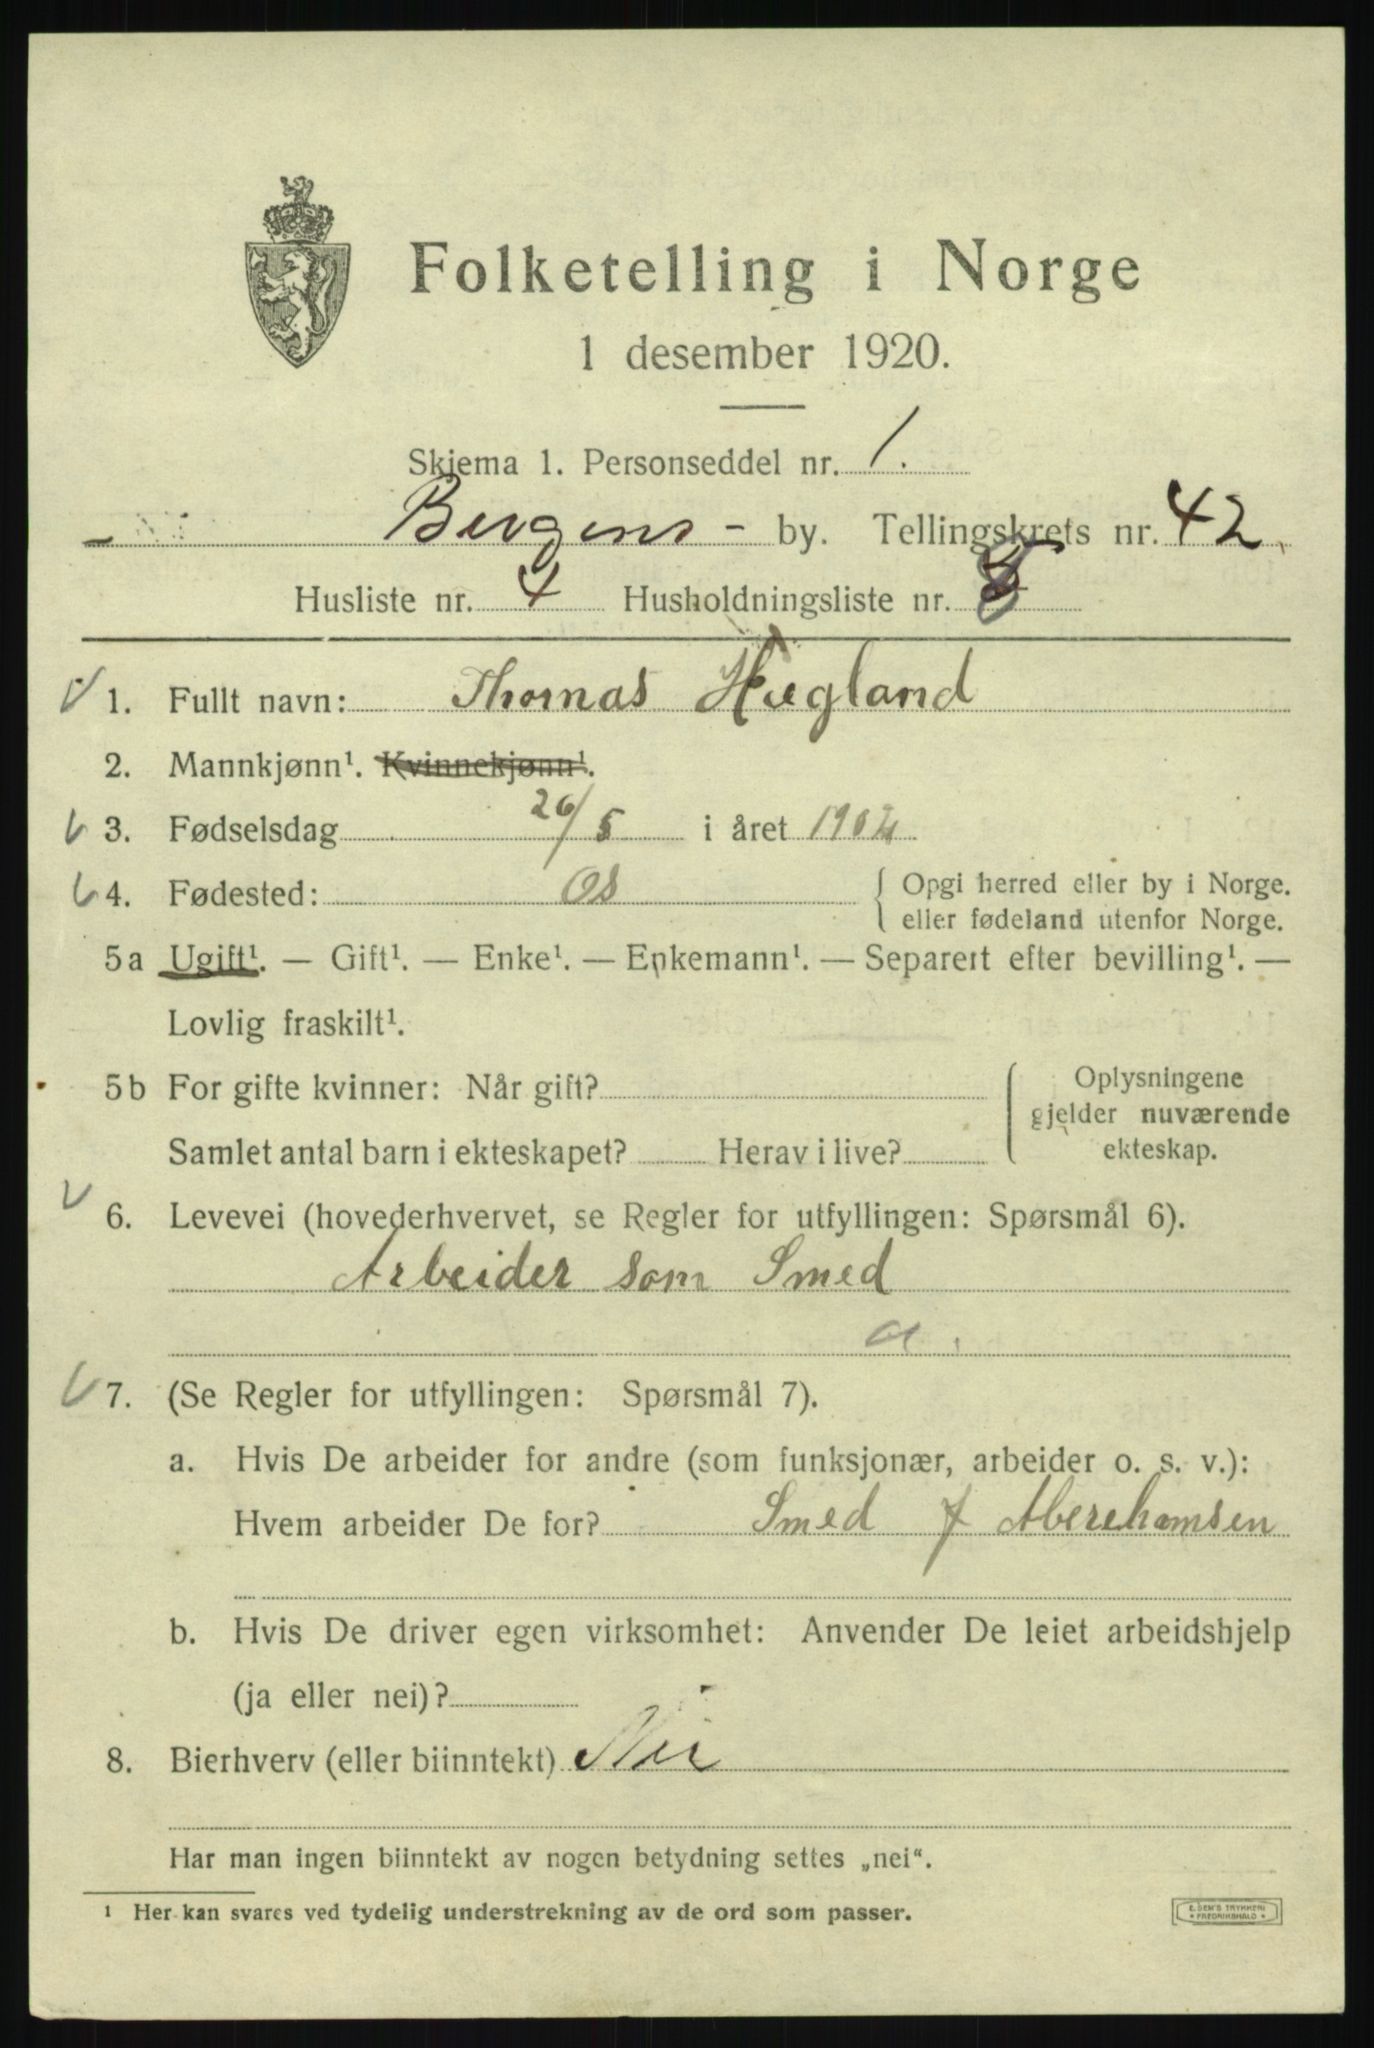 Folketelling i Norge
1 desember 1920.
Skjema 1. Personseddel nr. 1.
Bergens - by. Tellingskrets nr. 42
Husliste nr. 4 Husholdningsliste nr. 8
1. Fullt navn: Thomas Hægland
2. Mannkjønn¹. Kvinnekjønn¹.
3. Fødselsdag 26/5 i året 1902
4. Fødested: Os { Opgi herred eller by i Norge.
eller fødeland utenfor Norge.
5a Ugift¹. — Gift¹. — Enke¹. — Enkemann¹. — Separert efter bevilling¹. —
Lovlig fraskilt¹.
5b For gifte kvinner: Når gift? { Oplysningene
gjelder nuværende
Samlet antal barn i ekteskapet? Herav i live? ekteskap.
6. Levevei (hovederhvervet, se Regler for utfyllingen: Spørsmål 6).
Arbeider som Smed
a.
7. (Se Regler for utfyllingen: Spørsmål 7).
a. Hvis De arbeider for andre (som funksjonær, arbeider o. s. v.):
Hvem arbeider De for? Smed J Aberehamsen
b. Hvis De driver egen virksomhet: Anvender De leiet arbeidshjelp
(ja eller nei)?
8. Bierhverv (eller biinntekt) Nei
Har man ingen biinntekt av nogen betydning settes „nei“.
¹ Her kan svares ved tydelig understrekning av de ord som passer.
E. SEM'S TRYKKERI
• FREDRIKSHALD •